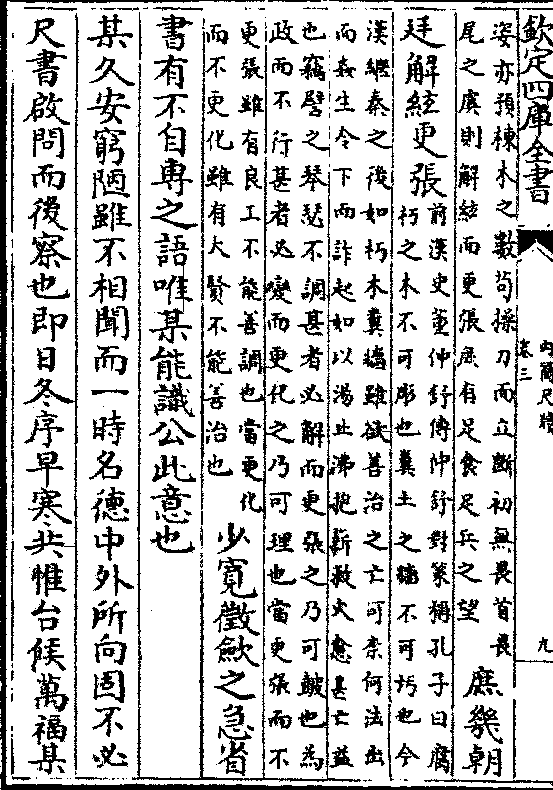 欽定四庫全書
內簡尺牘
卷三
九
姿亦預棟木之數苟操刀而立斷初無畏首畏
尾之虞則解絃而更張庶有足食足兵之望
庶幾朝
廷解絃更張
前漢史董仲舒傳仲舒對策稱孔子曰腐
朽之木不可彫也糞土之牆不可圬也今
漢繼秦之後如朽木糞牆雖欲善治之亡可柰何法出
而姦生令下而詐起如以湯止沸抱薪救火愈甚亡益
也竊譬之琴瑟不調甚者必解而更張之乃可皷也為
政而不行甚者必變而更化之乃可理也當更張而不
更張雖有良工不能善調也當更化
而不更化雖有大賢不能善治也
少寛徵斂之急省
書有不自専之語唯某能識公此意也
某久安窮陋雖不相聞而一時名德中外所向固不必
尺書啟問而後察也即日冬序早寒共惟台候萬福某